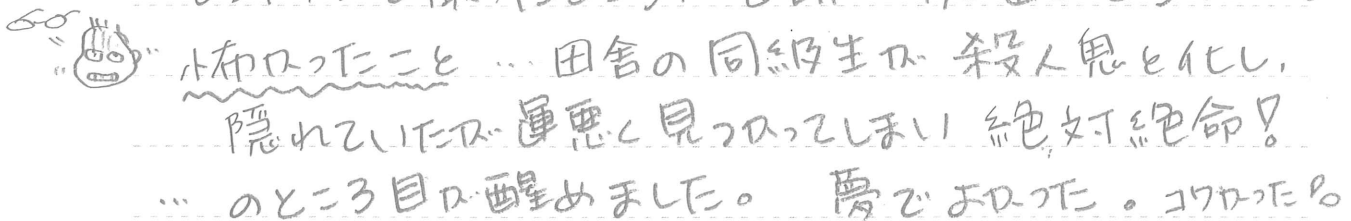 怖かったこと … 田舎の同級生が殺人鬼と化し、
隠れていたが運悪く見つかってしまい 絶対絶命!
… のところ目が醒めました。 夢でよかった。コワかった。